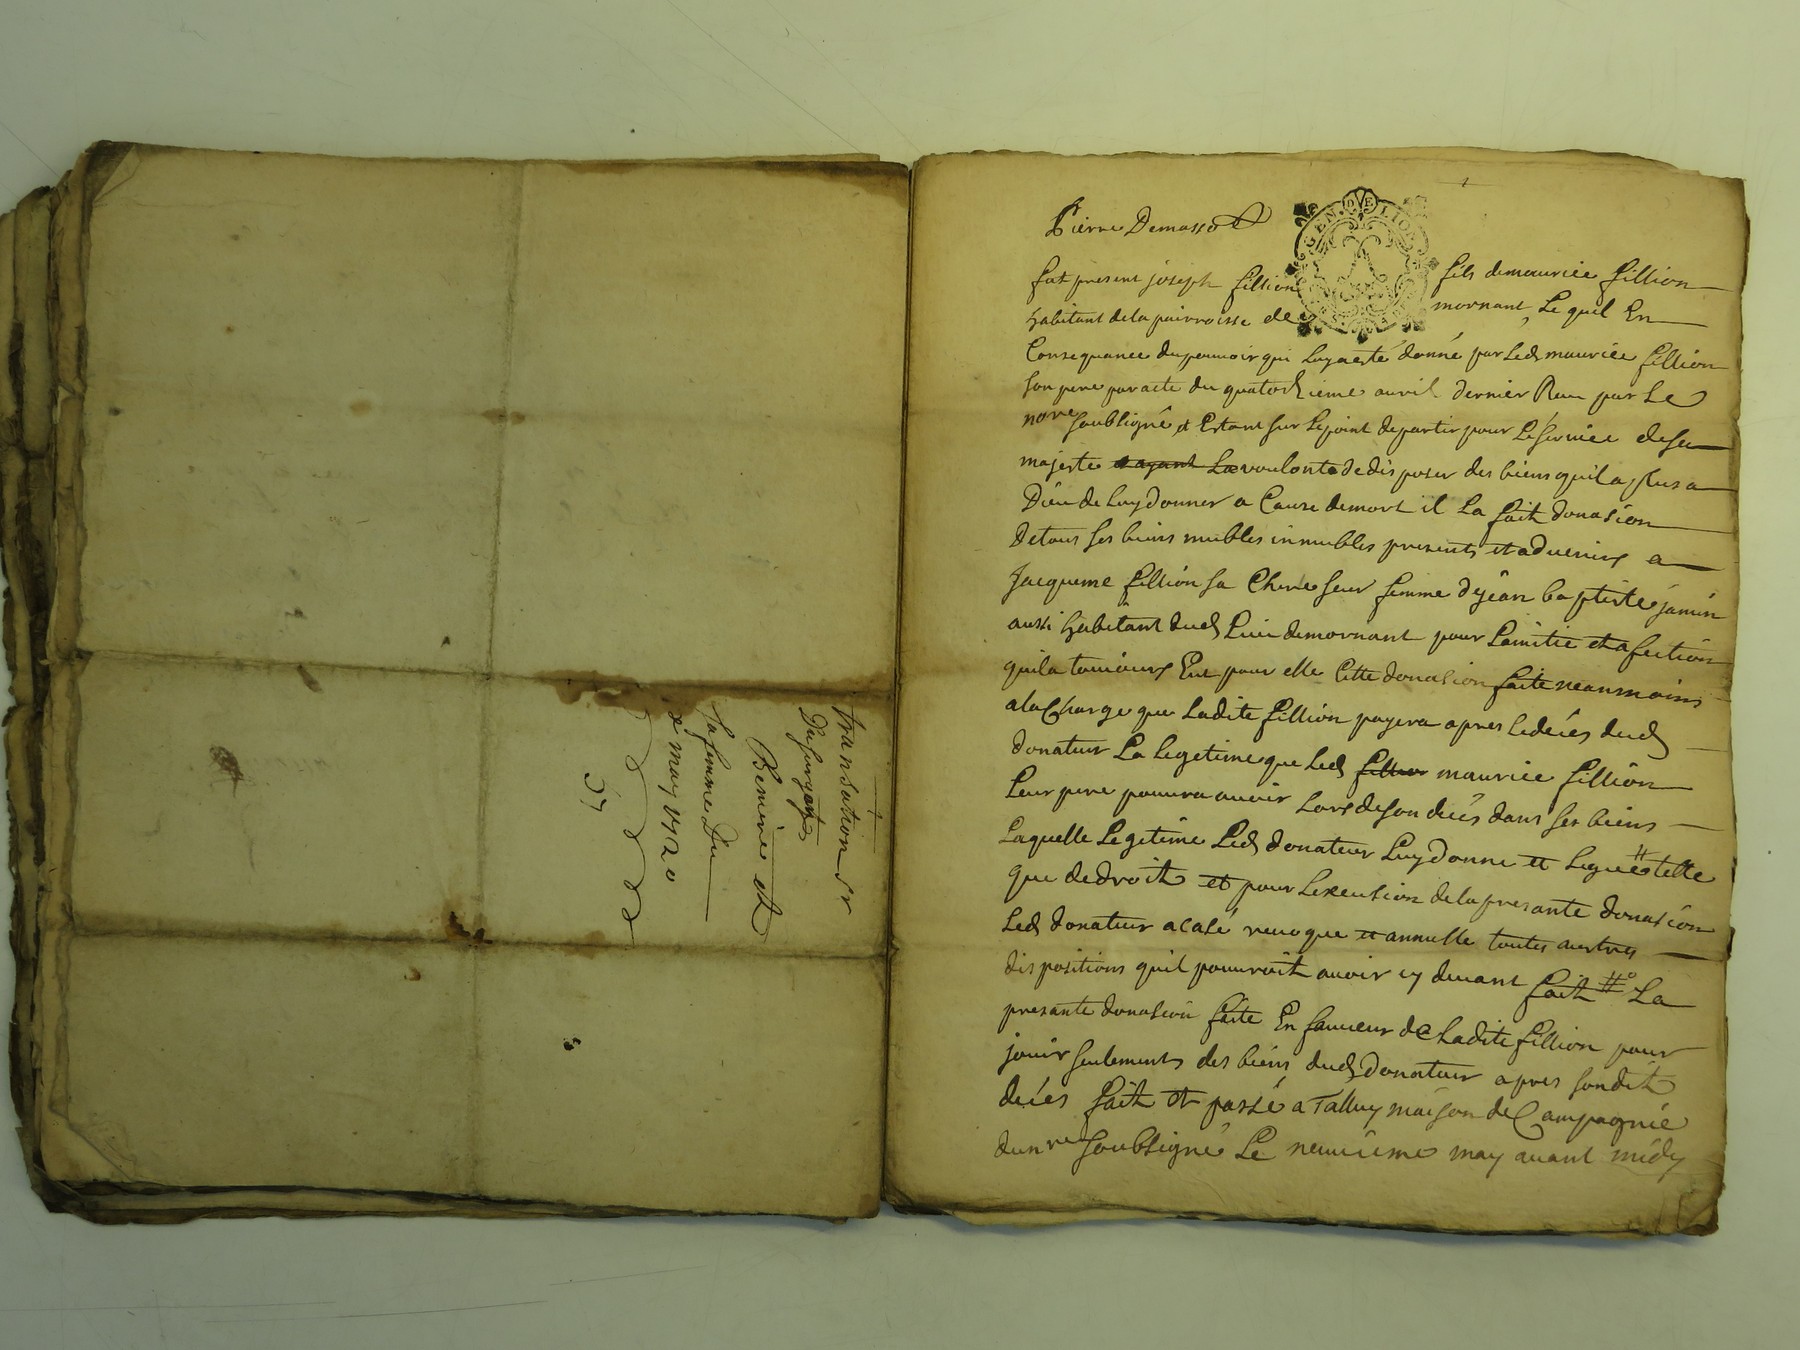 transsation sr
Du
Benière et
sa femme Du
2e may 1720
57
Pierre Demasso
GEN. DE LION
fut present joseph fillion fils de maurice fillion
habitant de la parroisse de mornant Lequel En
Consequance du pouvoir qui Luy a esté donné par Led maurice fillion
son pere par acte du quatorzieme avril dernier Receu par Le
nore soubsigné et Estant sur Le point de partir pour Le service de sa
majeste et ayant La voulonté de disposer des biens quil a plus a
Dieu de Luy donner a Cause de mort il La fait donasion
De tous ses biens meubles inmeubles presents et advenirs a
Jacqueme fillion sa Chere seur femme de jean baptiste jamin
aussi habitant dud Lieu de mornant pour Lamitié et afection
quil a tousiours Eut pour elle Cette donasion faite neanmoins
a la Charge que Ladite fillion payera apres Le deces dud
donateur La Legetime que Led fillion maurice fillion
Leur pere pourra avoir Lors de son deces dans ses biens
Laquelle Legetime Led donateur Luy donne et Legue telle
que de droit et pour Lexecusion de la presante donasion
Led donateur a casé revoque et annulle toutes autres
dispositions quil pourroit avoir cy devant fait La
presante donasion faite En faveur de Ladite fillion pour
jouir seulements des biens dud donateur apres sondit
deces fait et passé a Talluy maison de Campagnie
du nre soubsigné Le neuvieme may avant midy